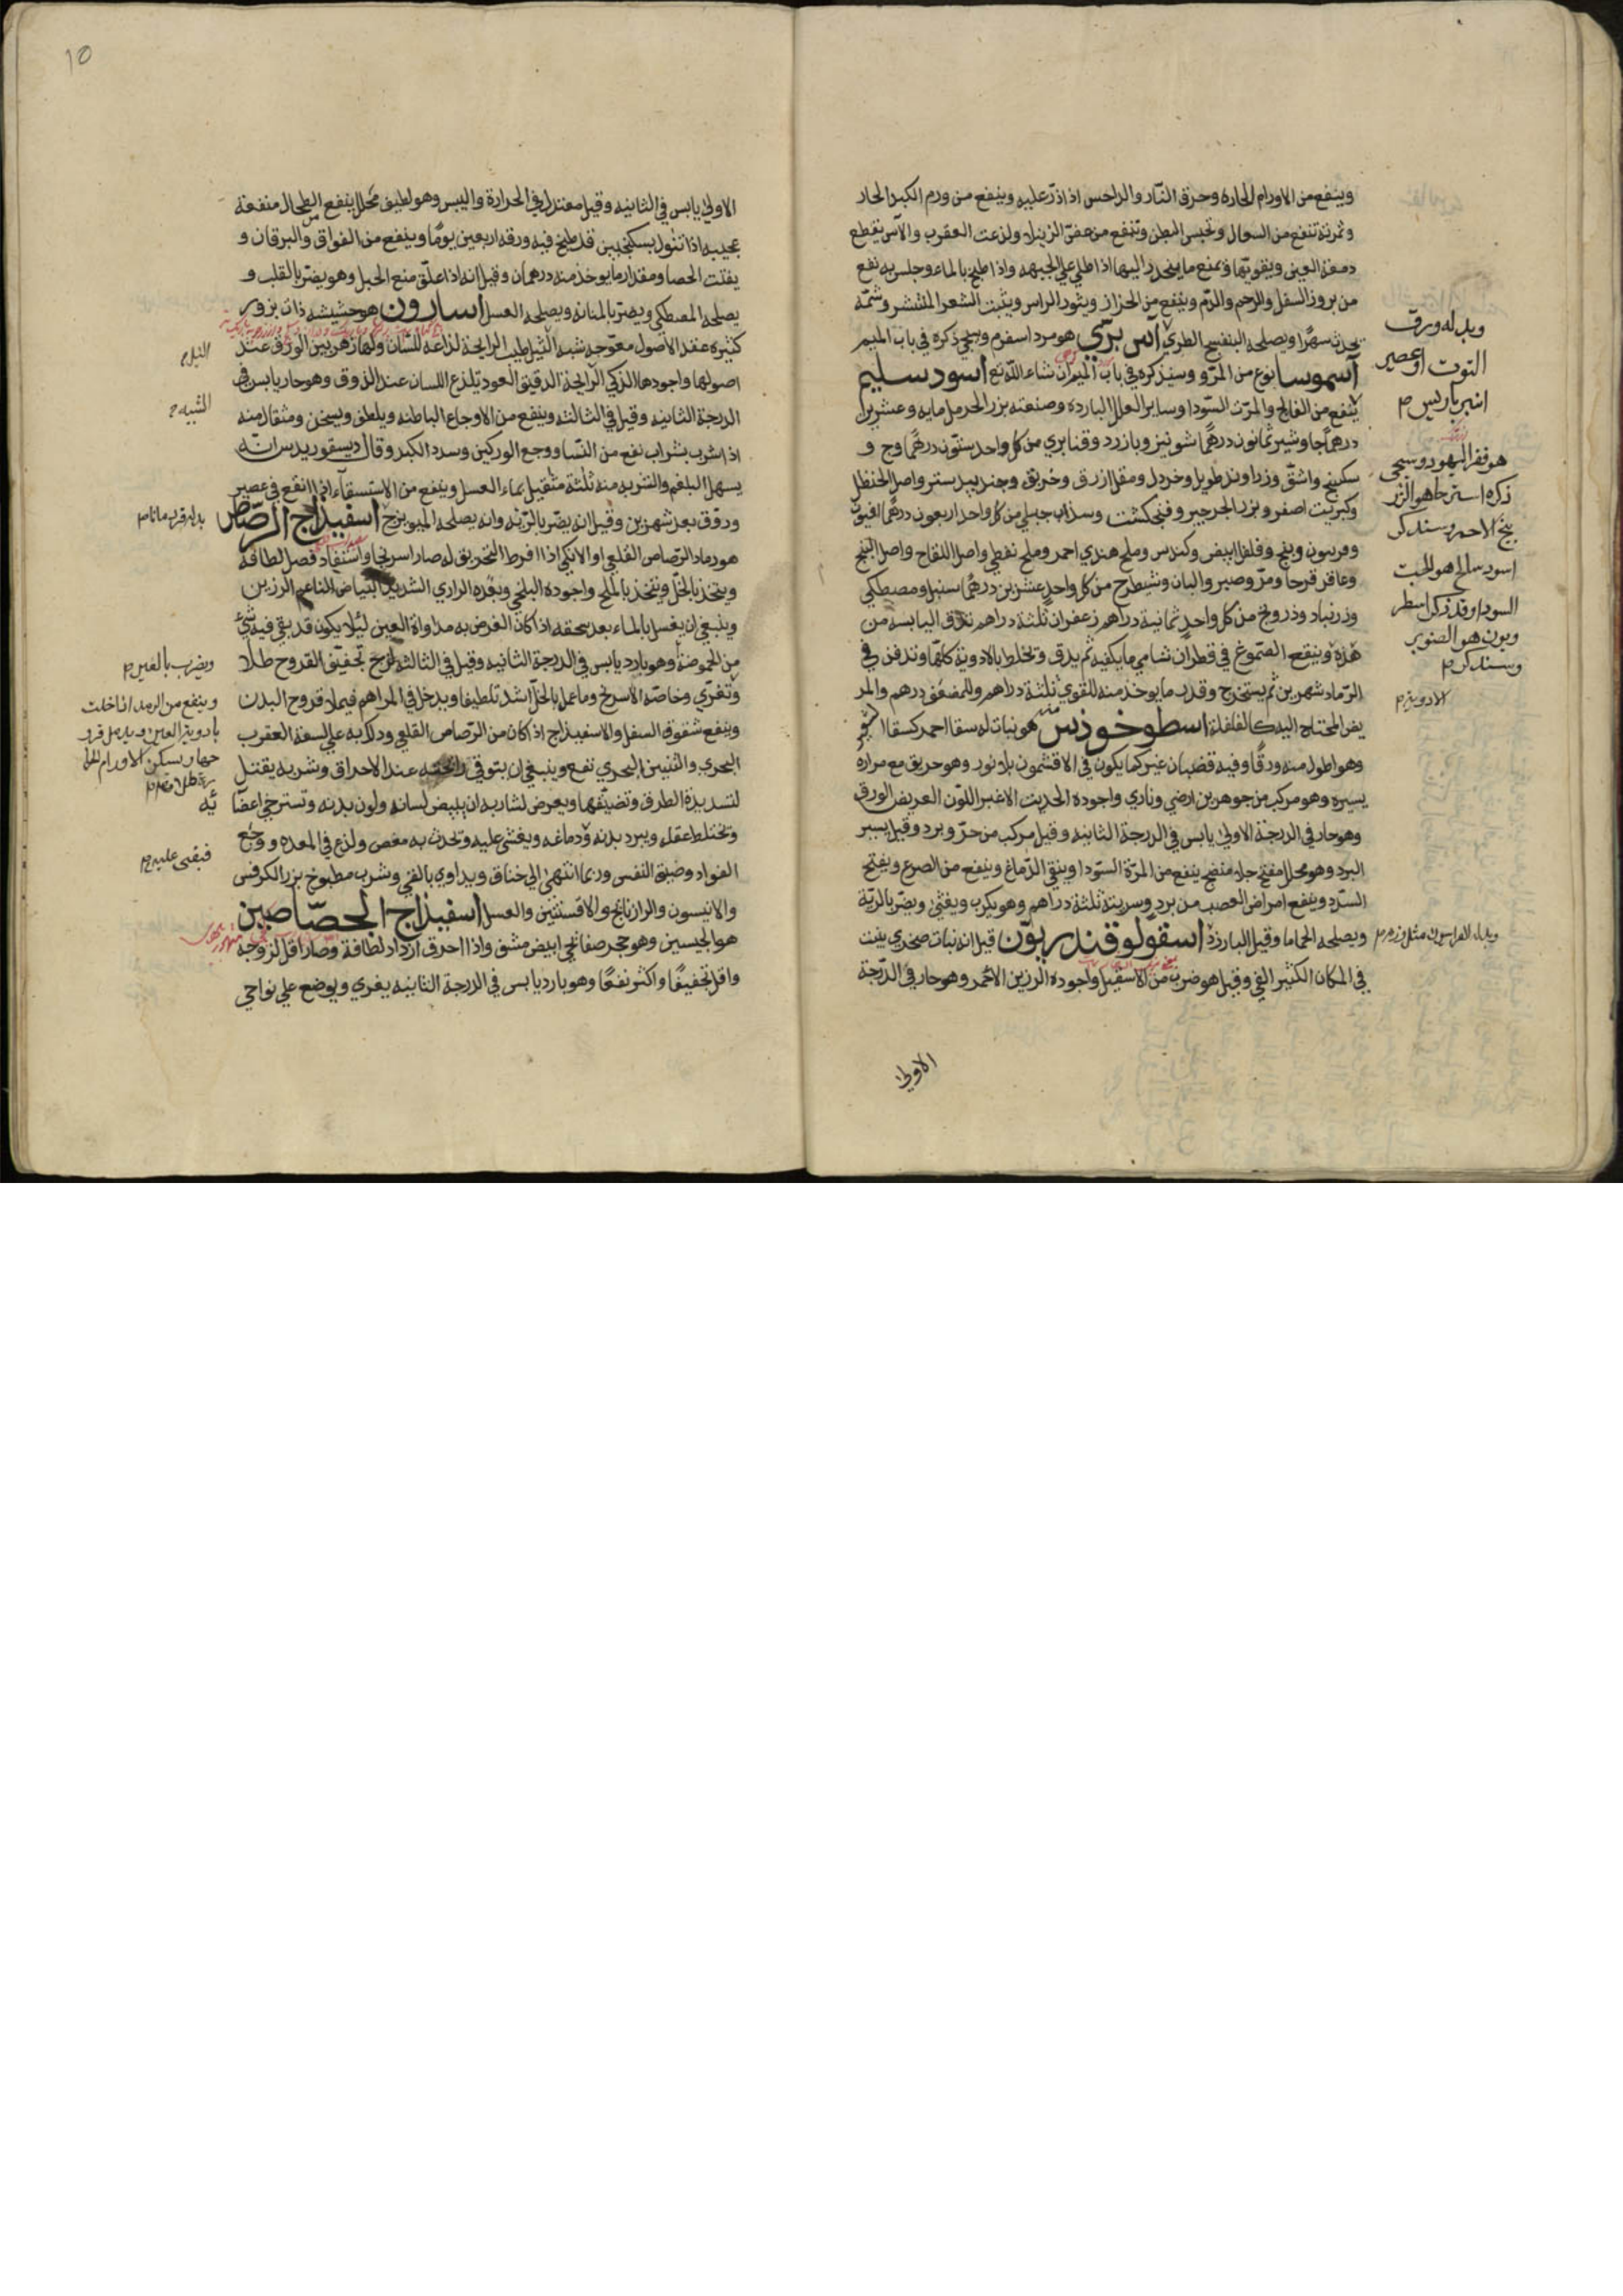 وينفع من الاورام الحاره وحرق النار والداحس اذا ذر عليه وينفع من ورم الكبد الحار
وثمرته تنفع من السعال وتحبس البطن وتنفع من عض الرتيلا ولذعت العقرب والآس يقطع
دمعة العين ويقويها ويمنع ما ينحدر اليها اذا طلي علي الجبهه واذا طبخ بالماء وجلس به نفع
من بروز السفل والرحم والدم وينفع من الحزاز وبثور الراس وينبت الشعر المنتشر وشمه
يحدث سهرا ويصلحه البنفسج الطري آس بري هو مرد اسفرم وسيجي ذكره في باب الميم
آسموسا نوع من المرو وسيذكره في باب الميم ان شاء الله تع اسود سليم
ينفع من الفالج والمرت السودا وساير العلل البارده وصنعته بزر الحرمل مايه وعشرين
درهما جاوشير ثمانون درهما شونيز وبازرد وقنا بري من كل واحد ستون درهما وج و
سكبينج واشق وزراوند طويل وخردل ومقل ازرق وخربق وجند بيد ستر واصل الحنظل
وكبريت اصفر وبزر الجرجير وفنجنكشت وسذاب جبلي من كل واحد اربعون درهما افيون
وفربيون وبنج وفلفل ابيض وكندس وملح هندي احمر وملح نفطي واصل اللفاح واصل البنج
وعاقر قرحا ومر وصبر والبان وشيطرج من كل واحد عشرين درهما سنبل ومصطكي
وزرنباد ودرونج من كل واحد ثمانية دراهم زعفران ثلثة دراهم تدق اليابسه من
هذه وينقع الصموغ في قطران شامي ما يكفيه ثم يدق وتخلط بالادوية كلها وتدفن في
الرماد شهرين ثم يستخرج وقدر ما يوخذ منه للقوي ثلثة دراهم وللضعيف درهم والمر
يض المحتاج اليه كالفلفلة اسطوخوذس هو نبات له سفا احمر كسفا الشعير
وهو اطول منه ورقا وفيه قضبان غبر كما يكون في الافثمون بلا نور وهو حريق مع مراره
يسيره وهو مركب من جوهرين ارضي وناري واجوده الحديث الاغبر اللون العريض الورق
وهو حار في الدرجة الاولي يابس في الدرجة الثانيه وقيل مركب من حر وبرد وقيل يسير
البرد وهو محلل مفتح جلا منضج ينفع من المرة السودا وينقي الدماغ وينفع من الصرع ويفتح
السدد وينفع امراض العصب من برد وسربته ثلثة دراهم وهو يكرب ويغثي ويضر بالرية
ويصلحه الحماما وقيل البارزد اسقولوقندريون قيل انه نبات صخري ينبت
في المكان الكثير الفي وقيل هو ضرب من الاسقيل واجوده الرزين الاحمر وهو حار في الدرجة
الاولي
وبدله ورق
التوت او عصير
انبرباريس
هو قفر اليهود وسيجي
ذكره
الاحمر وسنذكر
اسود سالخ هو الحيت
السودا وقد ذكر
هو الصنوبر
وسنذكر
الادويه
10
الاولي يابس في الثانيه وقيل معتدل في الحرارة واليبس وهو لطيف محلل ينفع الطحال منفعة
عجيبه اذا تنول بسكنجبين قد طبخ فيه ورقه اربعين يوما وينفع من الفواق واليرقان و
يفتت الحصا ومقدار ما يوخذ منه درهمان وقيل انه اذا علق منع الحبل وهو يضر بالقلب و
يصلحه المصطكي ويضر بالمثانه ويصلحه العسل اسارون هو حشيشه ذات بزور
كثيره عقد الاصول معوجه شبه الثيل طيب الرايحة لذاعه للسان ولها زهر بين الورق عند
اصولها واجودها الذكي الرايحة الدقيق العود يلذع اللسان عند الذوق وهو حار يابس في
الدرجة الثانيه وقيل في الثالثه وينفع من الاوجاع الباطنه ويلطف ويسخن ومثقال منه
اذا شرب بشراب نفع من النسا ووجع الوركين وسدد الكبد وقال ديسقوريدس انه
يسهل البلغم والشربه منه ثلثة مثقيل بماء العسل وينفع من الاستسقاء اذا انقع في عصير
وروق بعد شهرين وقيل انه يضر بالرية وانه يصلحه الميويزج اسفيذاج الرصاص
هو رماد الرصاص القلعي او الانكي اذا افرط التحريق له صار اسرنجا واستفاد فضل لطافة
ويتخذ بالخل ويتخذ بالملح واجوده البلخي وبعده الرازي الشديد البياض الناعم الرزين
وينبغي ان يغسل بالماء بعد سحقه اذا كان الغرض به مداواة العين ليلا يكون قد بقي فيه شي
من الحموضة وهو بارد يابس في الدرجة الثانيه وقيل في الثالثه تجفيف القروح طلا
وتغري وخاصه الاسرنج وما عمل بالخل اشد تلطيفا ويدخل في المراهم فيملا قروح البدن
وينفع شقوق السفل والاسفيذاج اذا كان من الرصاص القلعي ودلك به علي لسعة العقرب
البحري والتنين البحري نفع وينبغي ان يتوقي رائحته عند الاحراق وشربه يقتل
لتسديدة الطرق وتضيقها ويعرض لشاربه ان يبيض لسانه ولون بدنه وتسترخي اعضا
يه
وتختلط عقله ويبرد بدنه ودماغه ويغشي عليه وتحدث به مغص ولذع في المعده ووجع
الفواد وضيق النفس وربما انتهي الي خناق ويداوي بالقي وشرب مطبوخ بزر الكرفس
والانيسون والرازيانج والافسنتين والعسل اسفيذاج الجصاصين
هو الجبسين وهو حجر صفائحي ابيض مشف واذا احرق ازداد لطافة وصار اقل لزوجة
واقل تجفيفا واكثر نفعا وهو بارد يابس في الدرجة الثانيه يغري ويوضع علي نواحي
وينفع من الرمد اذا خلت